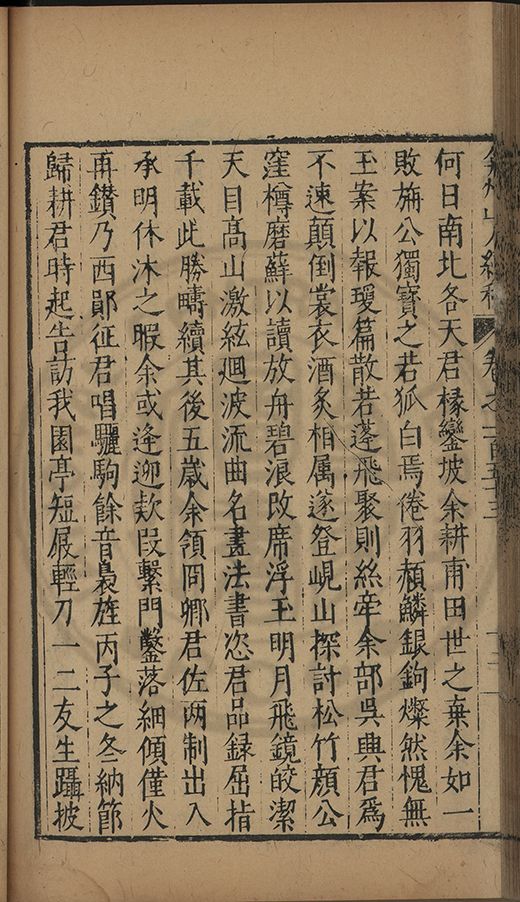 弇州山人續稿 卷之一百五十三
何日南北各天君椽鑾坡余耕甫田世之棄余如一
敗旃公獨寶之若狐白焉倦羽赬鱗銀鉤燦然愧無
玉案以報瓊篇散若蓬飛聚則絲牽余部吳興君爲
不速顛倒裳衣酒炙相属遂登峴山探討松竹顏公
窪樽磨蘚以讀放舟碧浪改席浮玉明月飛鏡皎潔
天目高山激絃迴波流曲名畫法書恣君品録屈指
千載此勝疇續其後五歲余領冏卿君佐两制出入
承明休沐之暇余或逢迎欵段繫門鑿落細傾僅火
再鑚乃西鄖征君唱驪駒餘音裊旌丙子之冬納節
歸耕君時起告訪我園亭短屐輕刀一二友生躡坡